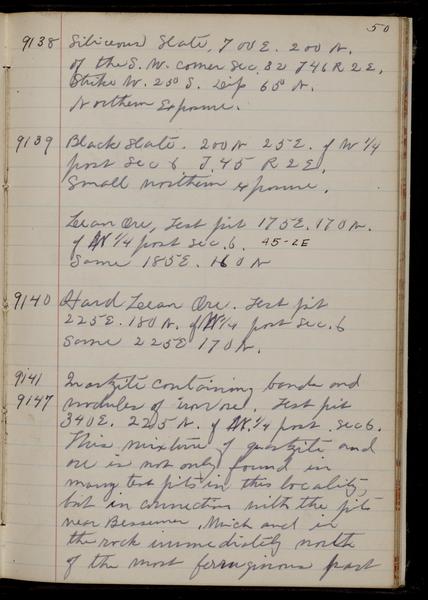 50
9138 Siliceous Slate, 700 E. 200 N.
of the S. W. corner Sec. 32 T46 R 2 E.
Strike W. 25° S. Dip 65° N.
Northern Exposure.
9139 Black slate. 200 N 25 E. of W 1/4
post Sec 6 T. 45 R 2 E.
Small northern exposure.
Lean Ore, Test pit 175 E. 170 N.
of W 1/4 post Sec. 6. 45-2E
Same 185 E. 160 N
9140 Hard Lean Ore. Test pit
225 E. 180 N. of W 1/4 post Sec. 6
Same 225 E 170 N.
9141 Quartzite containing bands and
9147 nodules of iron ore. Test pit
340 E. 225 N. of W. 1/4 post Sec 6.
This mixture of quartzite and
ore is not only found in
many test pits in this locality,
but in connection with the pits
near Bessemer, Mich and in
the rock immediately north
of the most ferruginous part